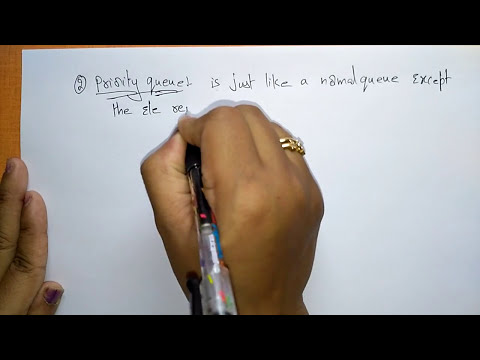 ② Priority queue is just like a normal queue except
the ele re